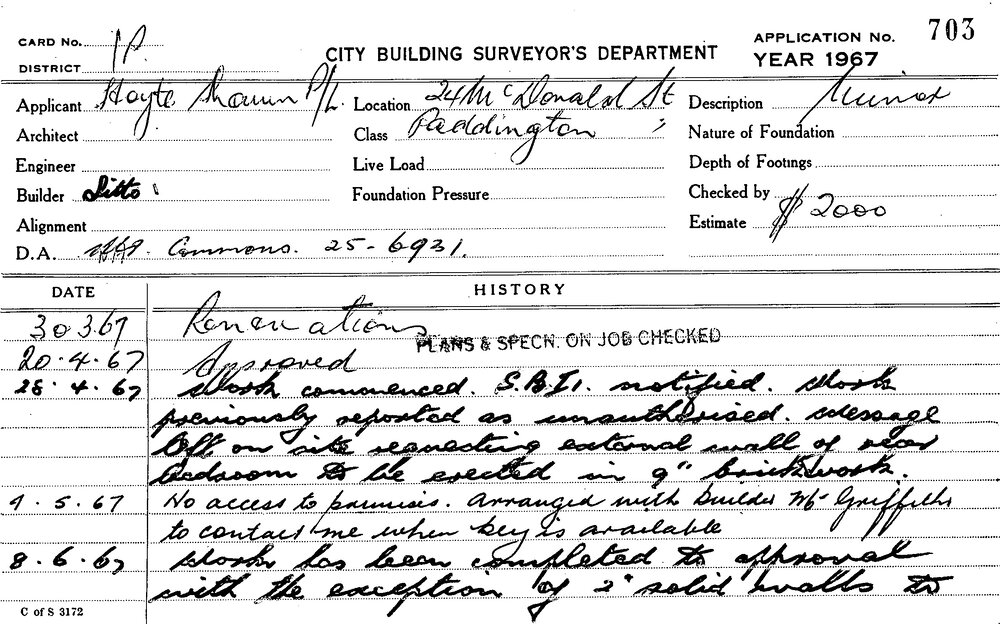 CARD No. 1P.
CITY BUILDING SURVEYOR'S DEPARTMENT
APPLICATION No. 703
YEAR 1967
DISTRICT
Applicant Hoyte P/L.
Location 24 McDonald St
Paddington
Description Minor
Architect
Class
Nature of Foundation
Engineer
Live Load
Depth of Footings
Builder Ditto
Foundation Pressure
Checked by
Alignment
Estimate $2000
D.A. Commons. 25-6931.
DATE HISTORY
30 3.67 Renovations
PLANS & SPECN. ON JOB CHECKED
20.4.67 Approved
28.4.67 Work commenced. S.B.I. notified. Work
previously reported as unauthorised. Message
left on site requesting external wall of rear
bedroom to be erected in 9" brickwork.
9.5.67 No access to premises. Arranged with builder Mr Griffiths
to contact me when key is available
8.6.67 Work has been completed to approval
with the exception of 2" solid walls to
C of S 3172